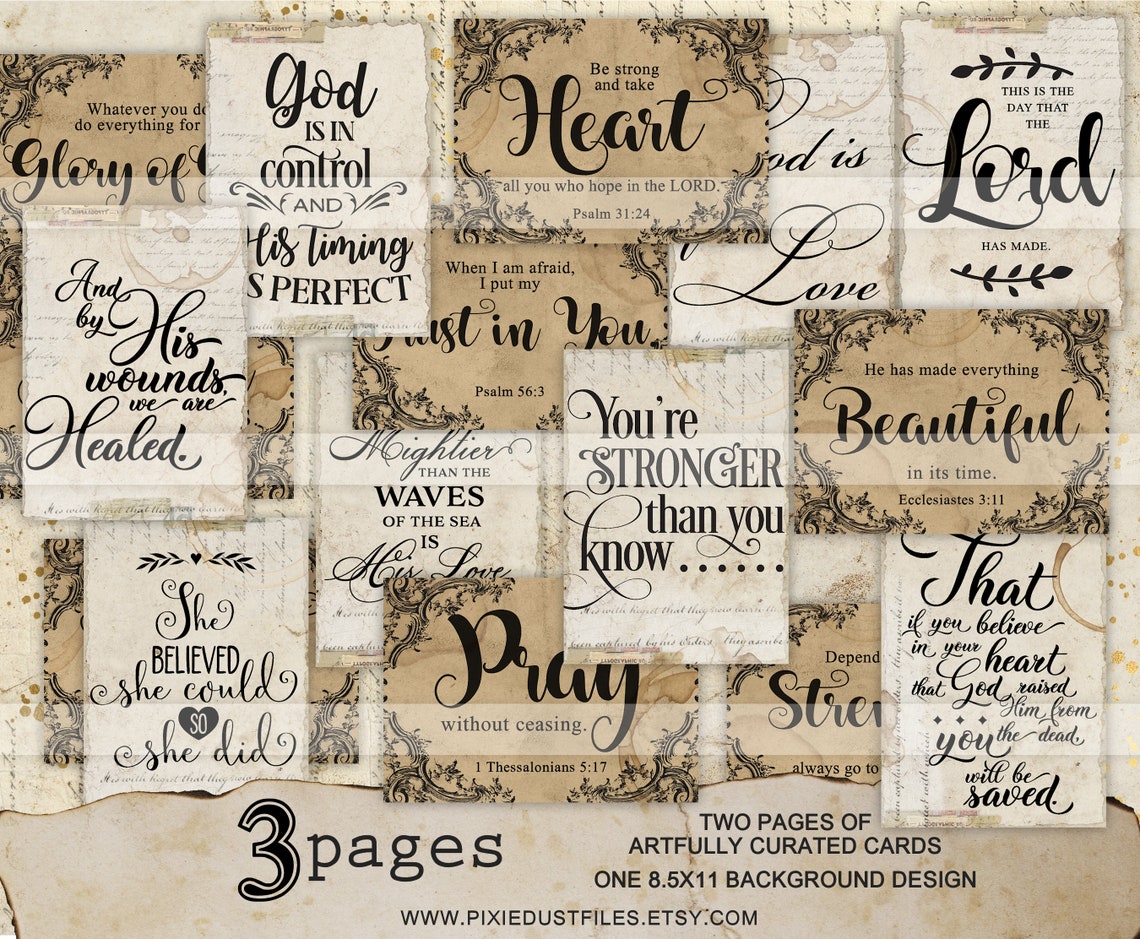 Whatever you do
do everything for
Glory of
God
IS IN
control
AND
His timing
IS PERFECT
Be strong
and take
Heart
all you who hope in the LORD.
Psalm 31:24
God is
Love
THIS IS THE
DAY THAT
THE
Lord
HAS MADE.
And
by His
wounds,
we are
Healed.
When I am afraid,
I put my
Trust in You
Psalm 56:3
He has made everything
Beautiful
in its time.
Ecclesiastes 3:11
Mightier
THAN THE
WAVES
OF THE SEA
IS
His Love
You're
STRONGER
than you
know......
She
BELIEVED
she could
SO
she did
Pray
without ceasing.
1 Thessalonians 5:17
Depend
Stren
always go to
That
if you believe
in your heart
that God raised
Him from
the dead,
you
will be
saved.
His with regret that they now learn
been captured by his orders They ascribe
3 pages
TWO PAGES OF
ARTFULLY CURATED CARDS
ONE 8.5X11 BACKGROUND DESIGN
WWW.PIXIEDUSTFILES.ETSY.COM